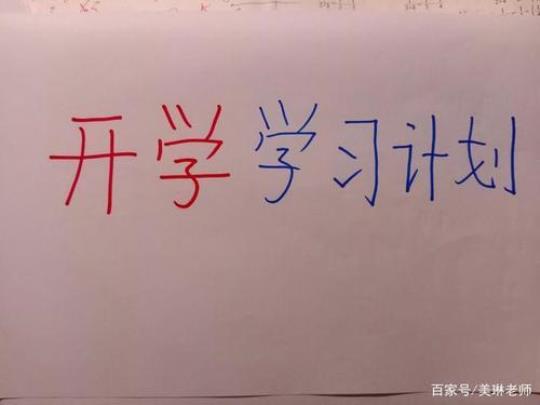 开学学习计划
百家号/美琳老师